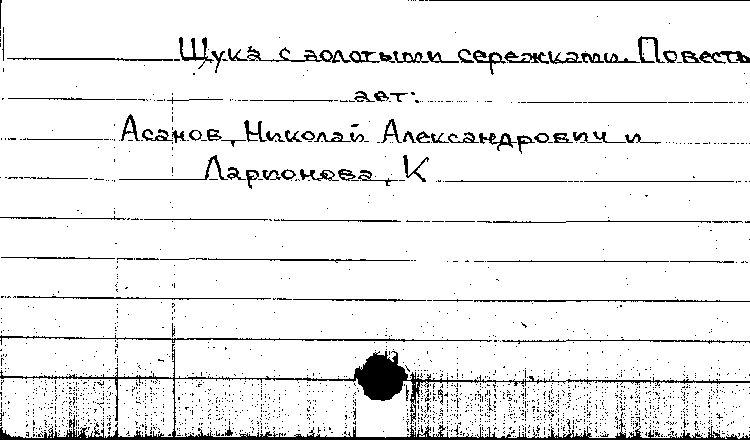 Щука с золотыми сережками. Повесть
авт:
Асанов, Николай Александрович и
Ларионова, К